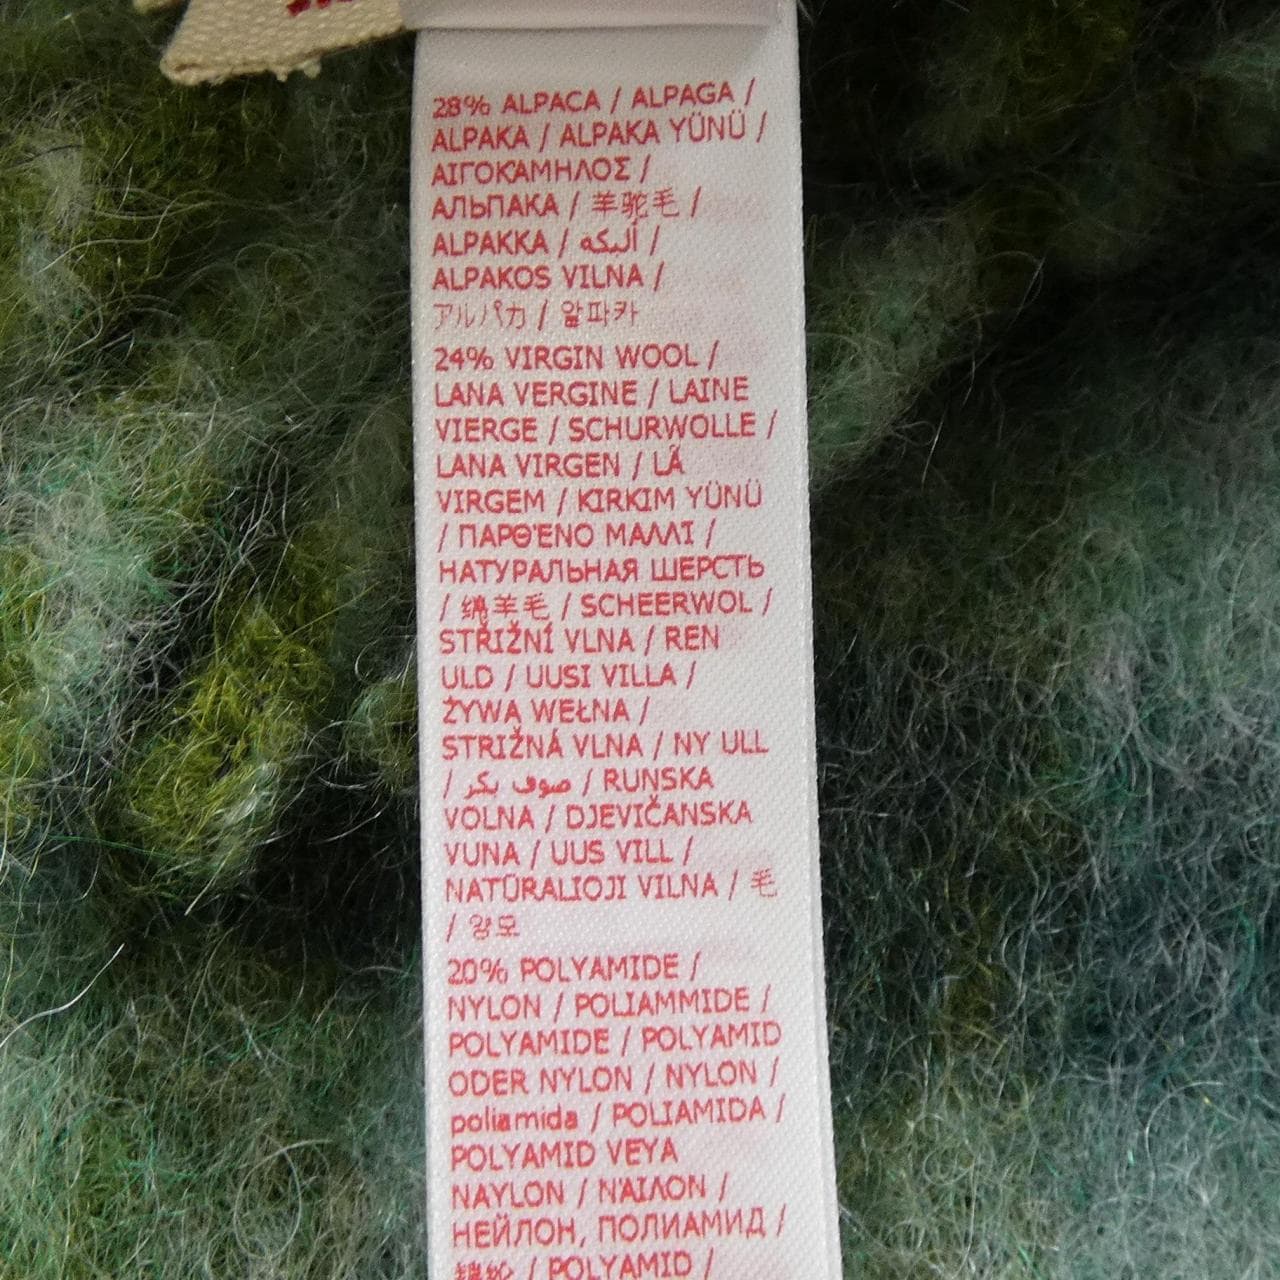 28% ALPACA / ALPAGA /
ALPAKA / ALPAKA YÜNÜ /
ΑΙΓΟΚΑΜΗΛΟΣ /
АЛЬПАКА / 羊驼毛 /
ALPAKKA / ألبكه /
ALPAKOS VILNA /
アルパカ / 알파카
24% VIRGIN WOOL /
LANA VERGINE / LAINE
VIERGE / SCHURWOLLE /
LANA VIRGEN / LÃ
VIRGEM / KIRKIM YÜNÜ
/ ΠΑΡΘΈΝΟ ΜΑΛΛΊ /
НАТУРАЛЬНАЯ ШЕРСТЬ
/ 绵羊毛 / SCHEERWOL /
STŘIŽNÍ VLNA / REN
ULD / UUSI VILLA /
ŻYWA WEŁNA /
STRIŽNÁ VLNA / NY ULL
/ صوف بكر / RUNSKA
VOLNA / DJEVIČANSKA
VUNA / UUS VILL /
NATŪRALIOJI VILNA / 毛
/ 양모
20% POLYAMIDE /
NYLON / POLIAMMIDE /
POLYAMIDE / POLYAMID
ODER NYLON / NYLON /
poliamida / POLIAMIDA /
POLYAMID VEYA
NAYLON / ΝΆΙΛΟΝ /
НЕЙЛОН, ПОЛИАМИД /
/ POLYAMID /